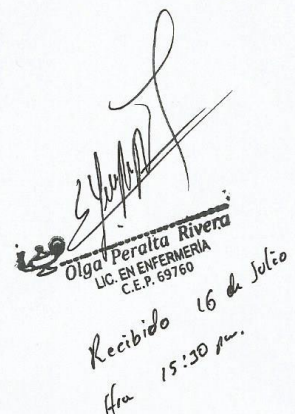 Olga Peralta Rivera
LIC. EN ENFERMERÍA
C.E.P. 69760
Recibido 16 de Julio
Hra 15:30 pm.